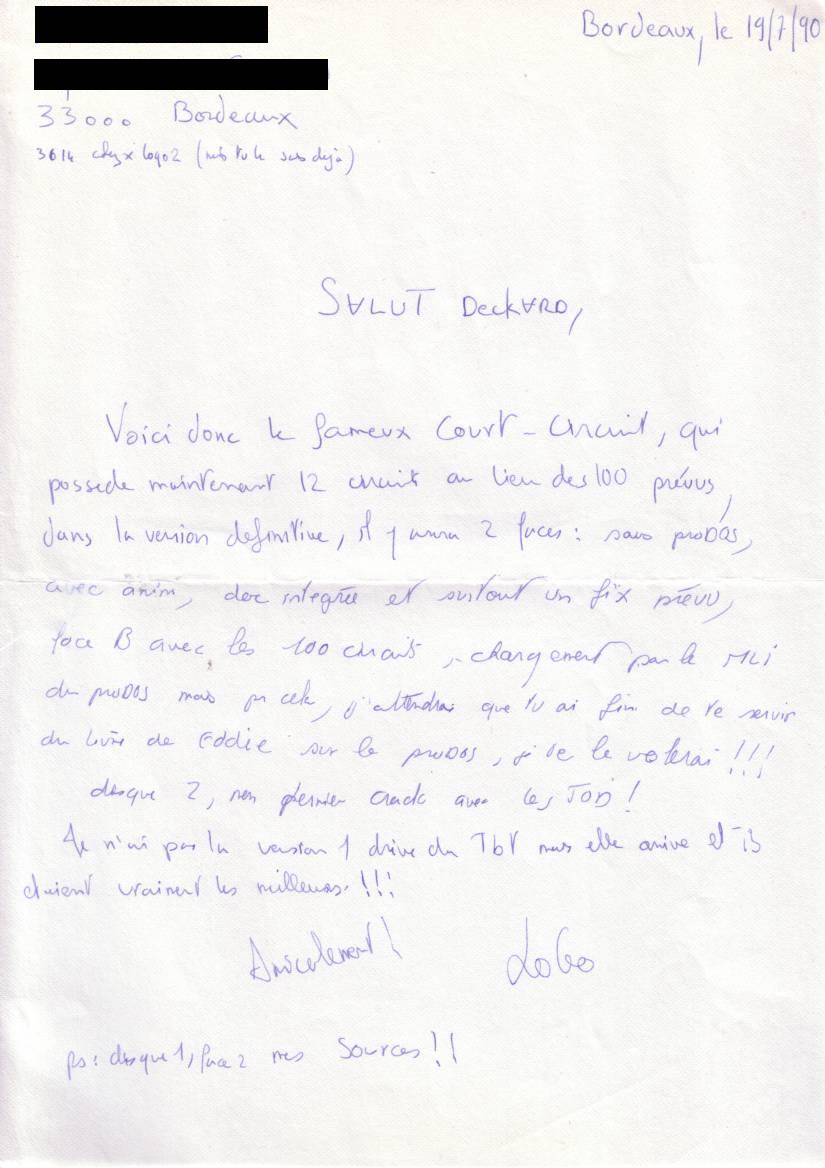 Bordeaux, le 19/7/90
33000 Bordeaux
3614 chez x logo2 (mais tu le sais déjà)
SALUT DeckARD,
Voici donc le fameux Court-Circuit, qui
possede maintenant 12 circuits au lieu des 100 prévus,
dans la version definitive, il y aura 2 faces : sans proDOS,
avec anim, doc integrée et surtout un fix prévu,
face B avec les 100 circuits, chargement par le MLi
du proDOS mais pr cela, j'attendrai que tu ai fini de te servir
du livre de Eddie sur le proDOS, je te le volerai !!!
disque 2, mon dernier crack avec les TOD !
Je n'ai pas la version 1 drive du TbT mais elle arrive et ils
étaient vraiment les meilleurs !!!
Amicalement !
LoGo
ps : disque 1, face 2 mes sources !!